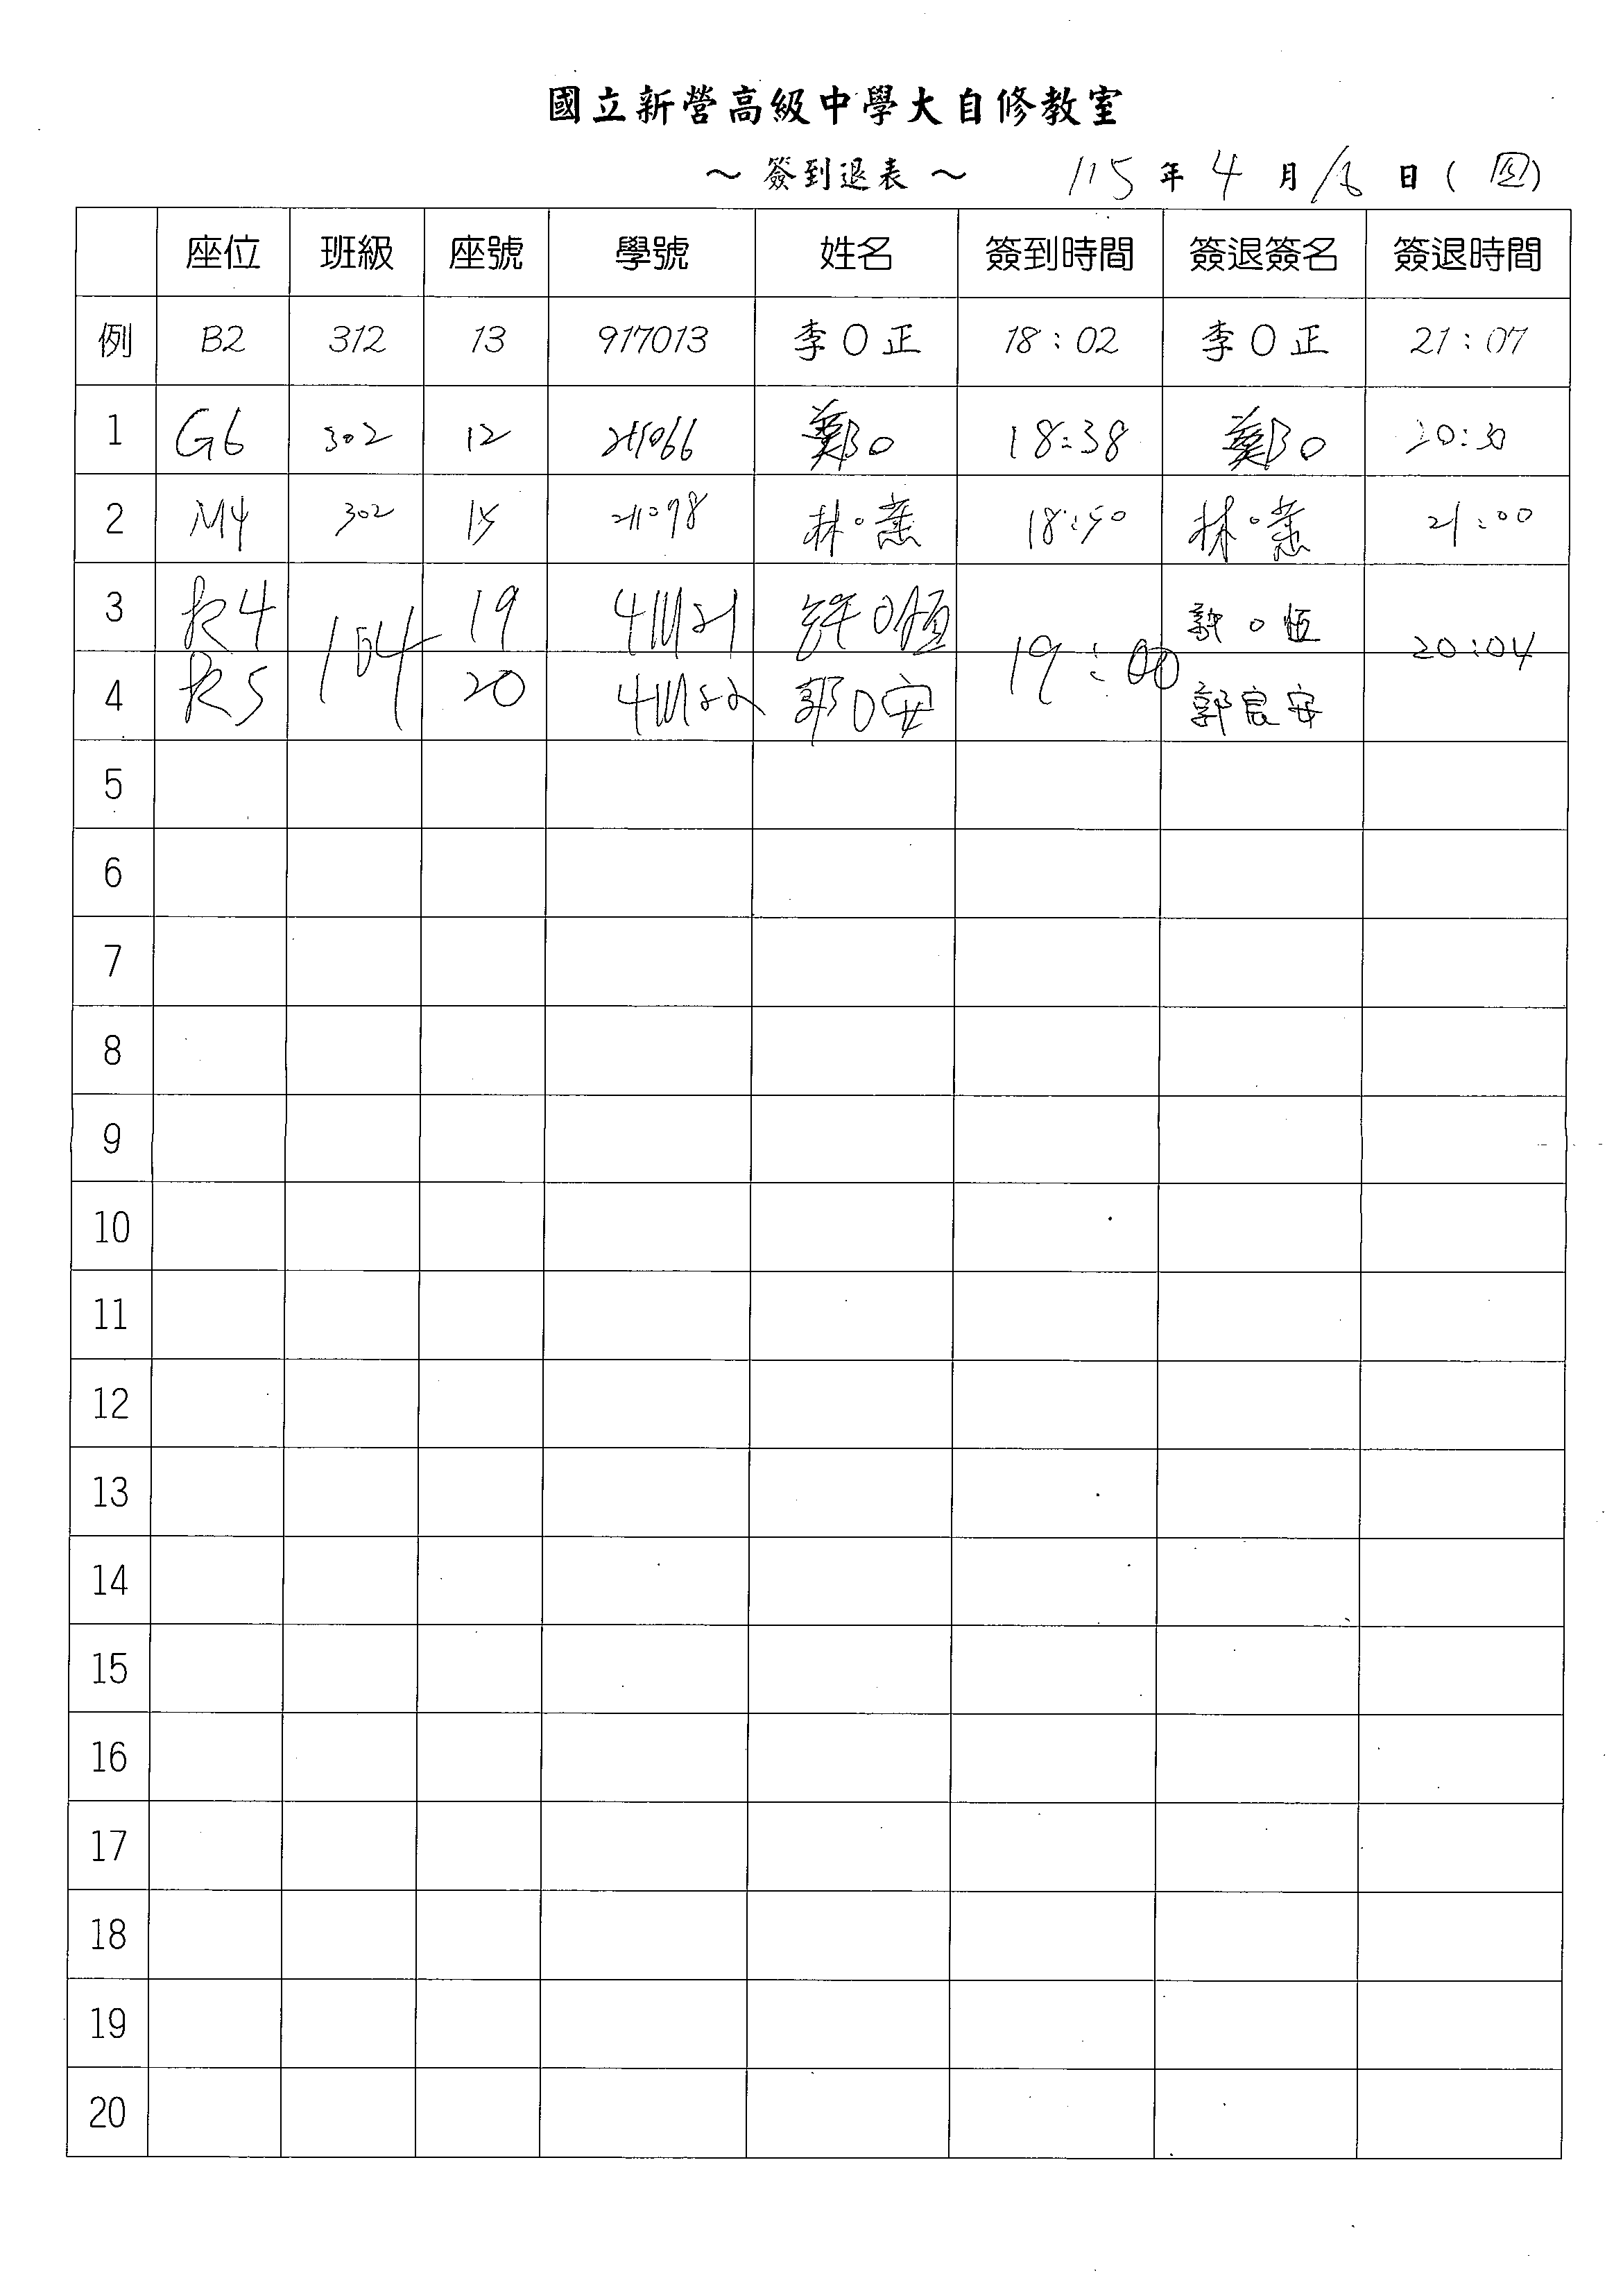 國立新營高級中學大自修教室
～ 簽到退表 ～ 115 年 4 月 16 日 ( 四 )
座位 班級 座號 學號 姓名 簽到時間 簽退簽名 簽退時間
例 B2 312 13 917013 李O正 18:02 李O正 21:07
1 G6 302 12 211066 鄭O 18:38 鄭O 20:30
2 M4 302 15 211098 林○薰 18:50 林○薰 21:00
3 R4 104 19 411121 許O恆 19:00 許O恆 20:04
4 R5 20 郭O安 郭良安
5
6
7
8
9
10
11
12
13
14
15
16
17
18
19
20